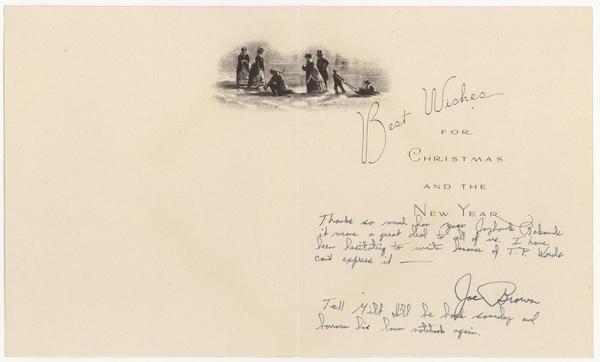 Best Wishes
FOR
CHRISTMAS
AND THE
NEW YEAR
Thanks so much for your Jayhawk
it means a great deal to all of us. I have
been hesitating to write because of T.P. Words
can't express it —
Joe Brown
Tell Milt I'll be back someday and
borrow his law notebook again.